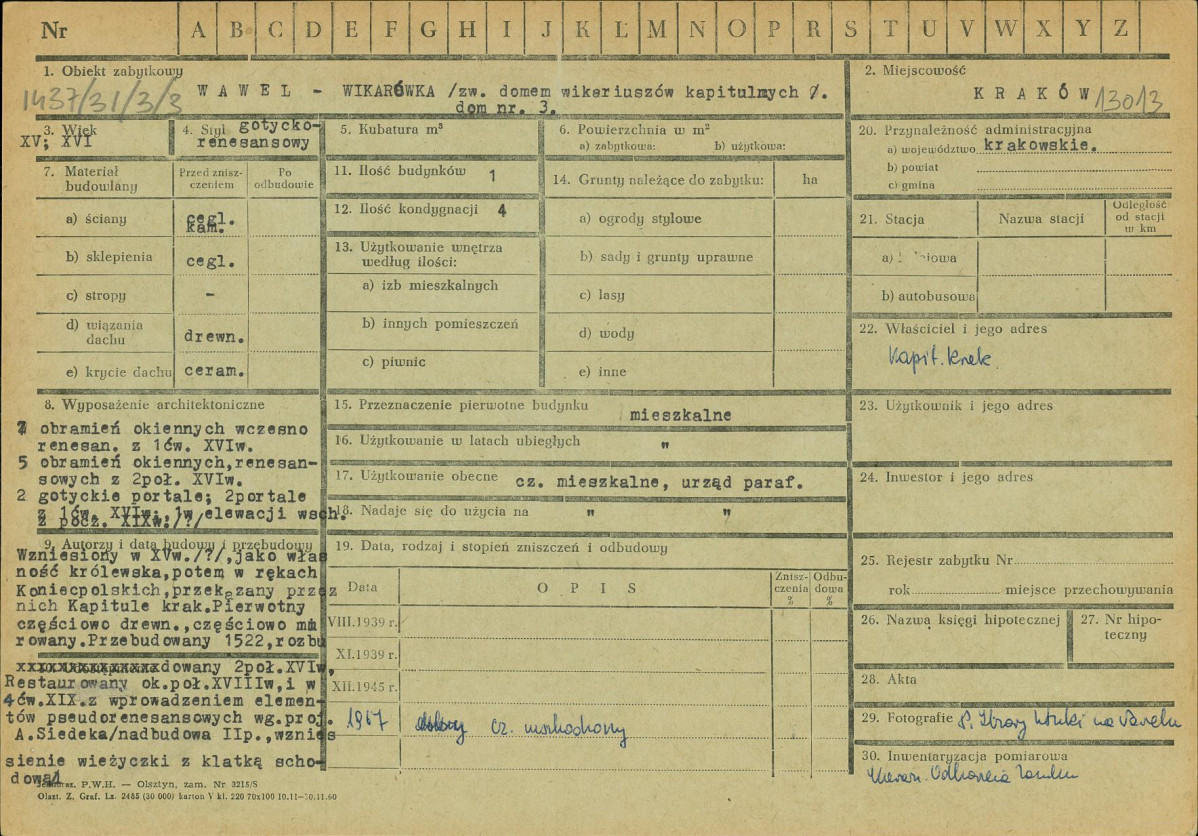 Nr A B C D E F G H I J K L Ł M N O P R S T U V W X Y Z
1. Obiekt zabytkowy
1437/31/3/3
WAWEL - WIKARÓWKA /zw. domem wikariuszów kapitulnych /.
dom nr. 3.
2. Miejscowość
KRAKÓW 13013
3. Wiek
XV; XVI
4. Styl gotycko-
renesansowy
5. Kubatura m³
6. Powierzchnia w m²
a) zabytkowa: b) użytkowa:
7. Materiał
budowlany
Przed znisz-
czeniem
Po
odbudowie
a) ściany cegl.
kam.
b) sklepienia cegl.
c) stropy -
d) wiązania
dachu drewn.
e) krycie dachu ceram.
8. Wyposażenie architektoniczne
7 obramień okiennych wczesno
renesan. z 1ćw. XVIw.
5 obramień okiennych,renesan-
sowych z 2poł. XVIw.
2 gotyckie portale; 2portale
z 1ćw. XVIw.; 1w elewacji wsch.
z pocz. XIXw./?/
9. Autorzy i data budowy i przebudowy
Wzniesiony w XVw./?/,jako włas
ność królewska,potem w rękach
Koniecpolskich,przekazany przez
nich Kapitule krak.Pierwotny
częściowo drewn.,częściowo mu
rowany.Przebudowany 1522,rozbu
dowany 2poł.XVIw,
Restaurowany ok.poł.XVIIIw,i w
4ćw.XIX.z wprowadzeniem elemen-
tów pseudorenesansowych wg.proj.
A.Siedeka/nadbudowa IIp.,wznies
sienie wieżyczki z klatką scho-
dową/
11. Ilość budynków 1
12. Ilość kondygnacji 4
13. Użytkowanie wnętrza
według ilości:
a) izb mieszkalnych
b) innych pomieszczeń
c) piwnic
14. Grunty należące do zabytku: ha
a) ogrody stylowe
b) sady i grunty uprawne
c) lasy
d) wody
e) inne
15. Przeznaczenie pierwotne budynku mieszkalne
16. Użytkowanie w latach ubiegłych "
17. Użytkowanie obecne cz. mieszkalne, urząd paraf.
18. Nadaje się do użycia na " "
19. Data, rodzaj i stopień zniszczeń i odbudowy
Data OPIS Znisz-
czenia
%
Odbu-
dowa
%
VIII.1939 r.
XI.1939 r.
XII.1945 r.
1967 cz.
20. Przynależność administracyjna
a) województwo krakowskie.
b) powiat
c) gmina
21. Stacja Nazwa stacji Odległość
od stacji
w km
a)
b) autobusowa
22. Właściciel i jego adres
Kapit. krak.
23. Użytkownik i jego adres
24. Inwestor i jego adres
25. Rejestr zabytku Nr
rok miejsce przechowywania
26. Nazwa księgi hipotecznej
27. Nr hipo-
teczny
28. Akta
29. Fotografie P. Zbiory Sztuki na Wawelu
30. Inwentaryzacja pomiarowa
Kierown. Odnowienia Zamku
P.W.H. — Olsztyn, zam. Nr 3215/S
Olszt. Z. Graf. Lz. 2485 (30 000) karton V kl. 220 70x100 10.11—30.11.60